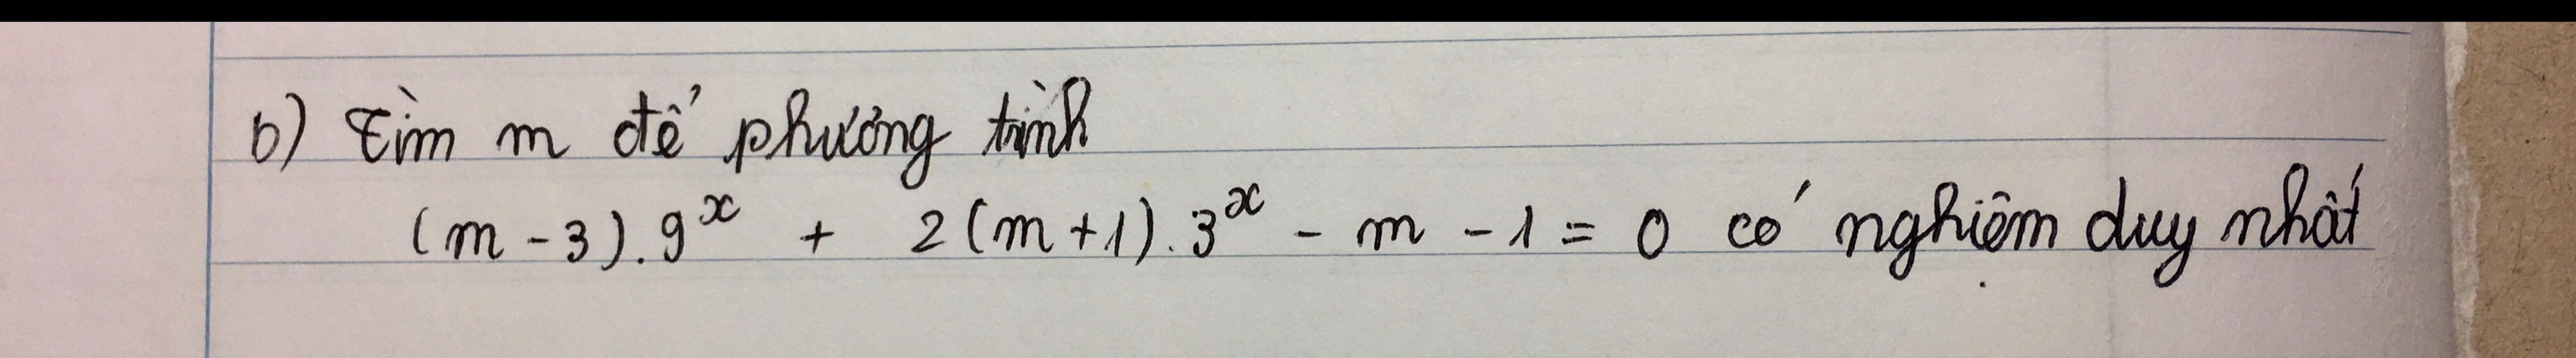 b) Tìm m để phương trình
(m - 3) . 9^x + 2(m + 1) . 3^x - m - 1 = 0 có nghiệm duy nhất